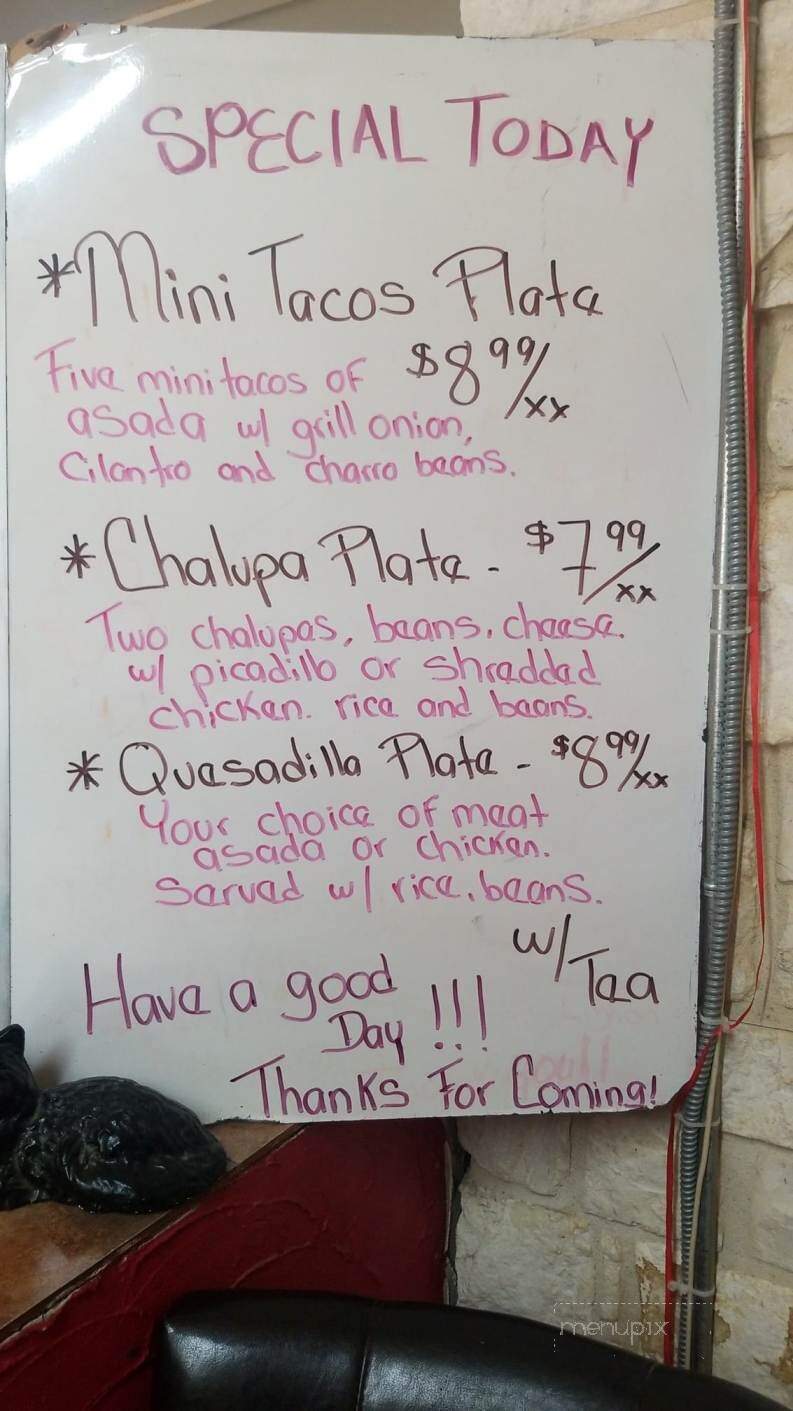 SPECIAL TODAY
*Mini Tacos Plate
Five mini tacos of $8.99/xx
asada w/ grill onion,
Cilantro and charro beans.
*Chalupa Plate - $7.99/xx
Two chalupas, beans, cheese.
w/ picadillo or shredded
chicken. rice and beans.
* Quesadilla Plate - $8.99/xx
Your choice of meat
asada or chicken.
Served w/ rice, beans.
w/ Tea
Have a good
Day !!!
Thanks For Coming!
menupix